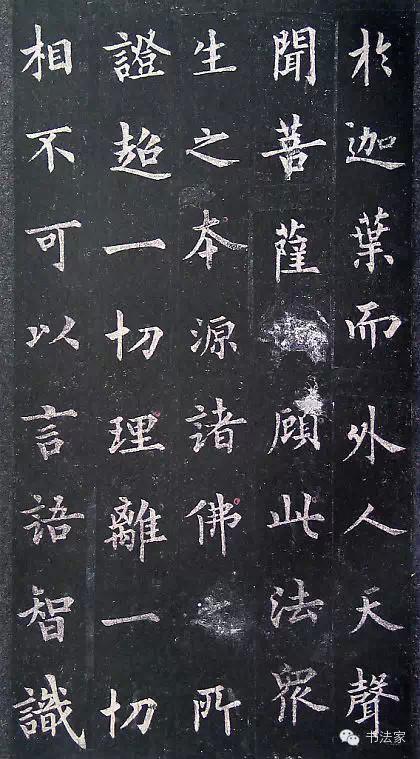 於迦葉而外人天聲
聞菩薩顧此法眾
生之本源諸佛所
證超一切理離一切
相不可以言語智識
书法家